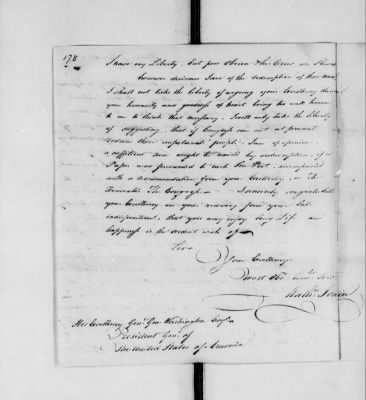 178
I have my Liberty, but poor Obrien & his Crew are Slaves
however desirous I am of the redemption of these men
I shall not take the liberty of urging your Excellency theron
your humanity and goodness of heart being too well known
to me to think that necessary. I will only take the Liberty
of suggesting, that if Congress can not at present
redeem these unfortunate people. I am of opinion
a sufficient sum might be raised by subscription, if a
Paper was forwarded to each Sea Port accompanied
with a recommendation from your Excellency, or The
Honorable The Congress — I sincerely congratulate
your Excellency on your recovery from your late
indisposition, that you may enjoy long Life and
happiness is the ardent wish of —
Sir
Your Excellencys
most Obd. Humble Servt
Nathl. Irwin
His Excellency Genl. Geo. Washington Esqr.
President Genl. of
The United States of America